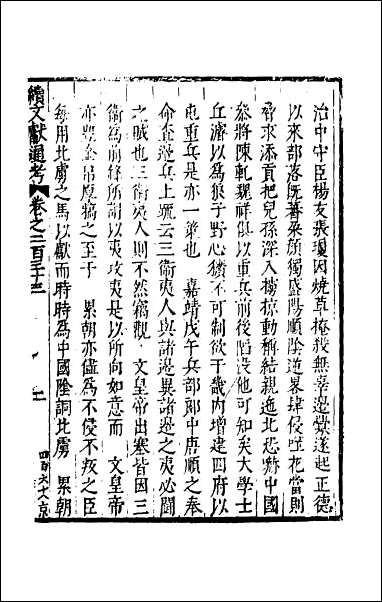 治中守臣楊友張瓊因燒草掩殺無辜邊釁遂起正德
以來部落既蕃朵顏獨盛陽順陰逆累肆侵噬花當則
脅求添貢把兒孫深入擄掠動稱結親迤北恐嚇中國
叅將陳乾魏祥俱以重兵前後陷沒他可知矣大學士
丘濬以為狼子野心獷不可制欲于畿内增建四府以
屯重兵是亦一策也　嘉靖戊午兵部郎中唐順之奉
命查邊兵上疏云三衛夷人與諸邊異諸邊之夷必聞
之賊也三衛夷人則不然竊觀　文皇帝出塞皆因三
衛為前鋒所謂以夷攻夷是以所向如意而　文皇帝
亦豐金帛厚犒之至于　累朝亦儘為不侵不叛之臣
每用北虜之馬以獻而時時為中國陰詗北虜　累朝
續文獻通考　卷之二百三十三